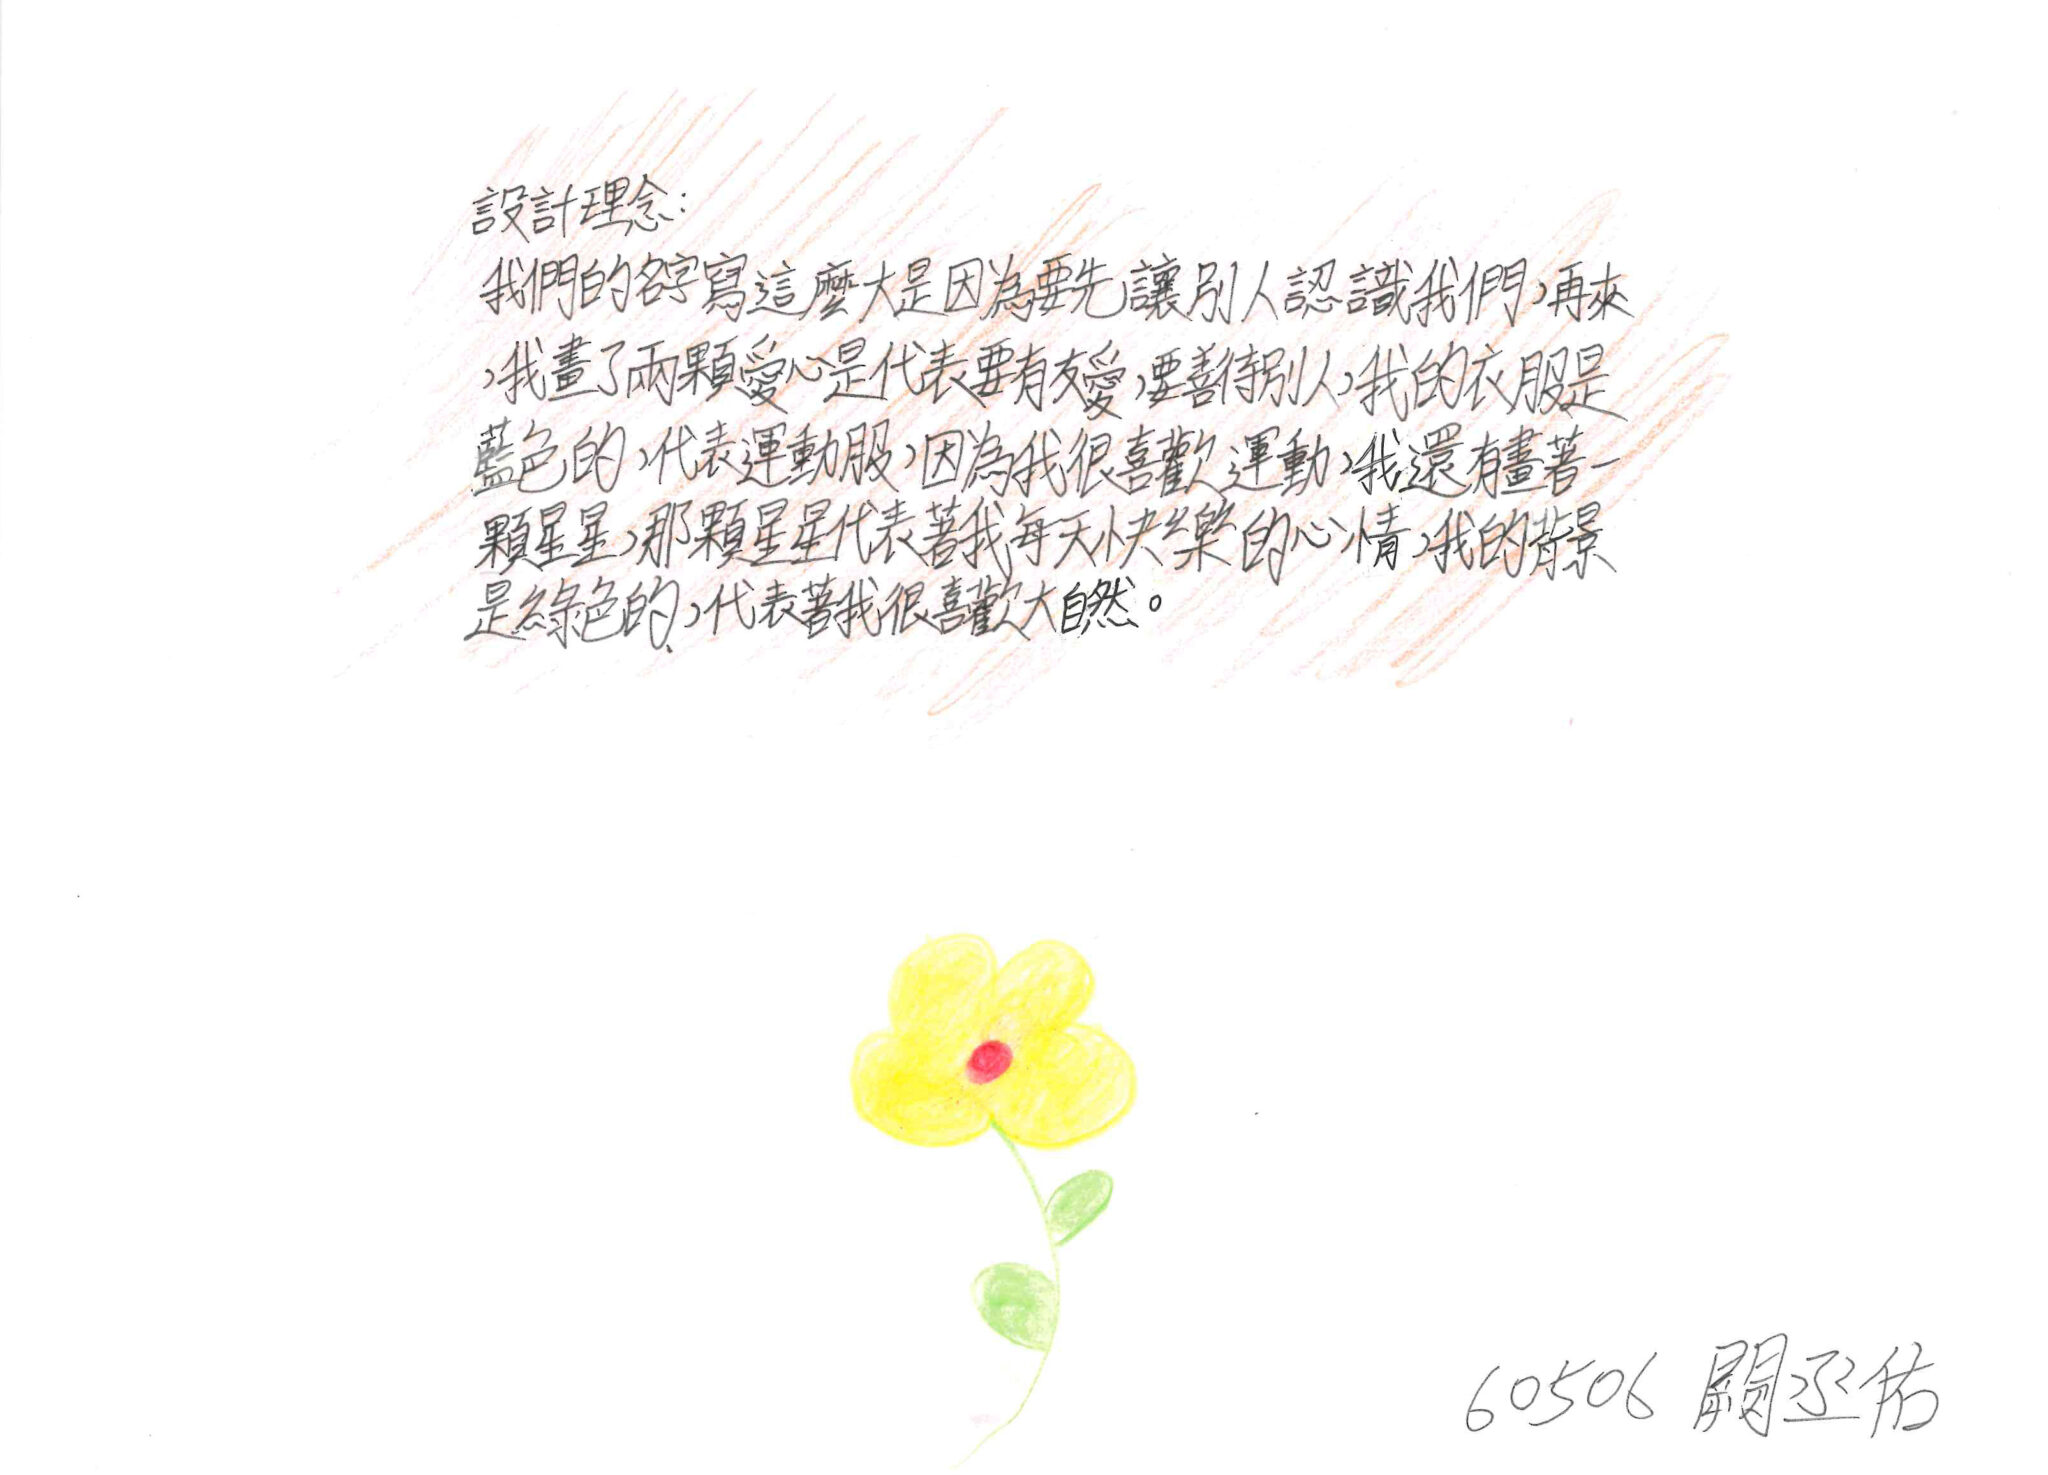 設計理念:
我們的名字寫這麼大是因為要先讓別人認識我們，再來
，我畫了兩顆愛心是代表要有友愛，要善待別人，我的衣服是
藍色的，代表運動服，因為我很喜歡運動，我還有畫著一
顆星星，那顆星星代表著我每天快樂的心情，我的背景
是綠色的，代表著我很喜歡大自然。
60506 闕丞佑